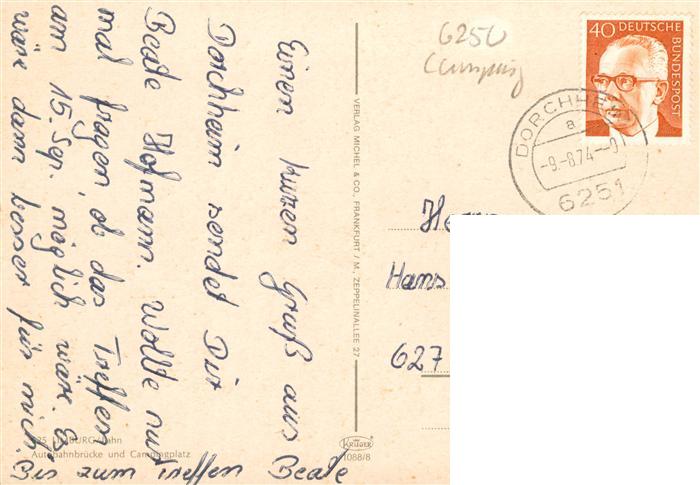 Einen kurzen Gruß aus
Dorchheim sendet Dir
Beate Hofmann. Wollte nur
mal fragen, ob das Treffen
am 15. Sep. möglich wäre. Es
wäre dann besser für mich.
Bis zum treffen Beate
625 LIMBURG/Lahn
Autobahnbrücke und Campingplatz
VERLAG MICHEL & CO., FRANKFURT / M., ZEPPELINALLEE 27
KRÜGER
1088/8
6250
Camping
40 DEUTSCHE
BUNDESPOST
DORCHHEIM
a
-9.-8.74.-9
6251
Herrn
Hans
627